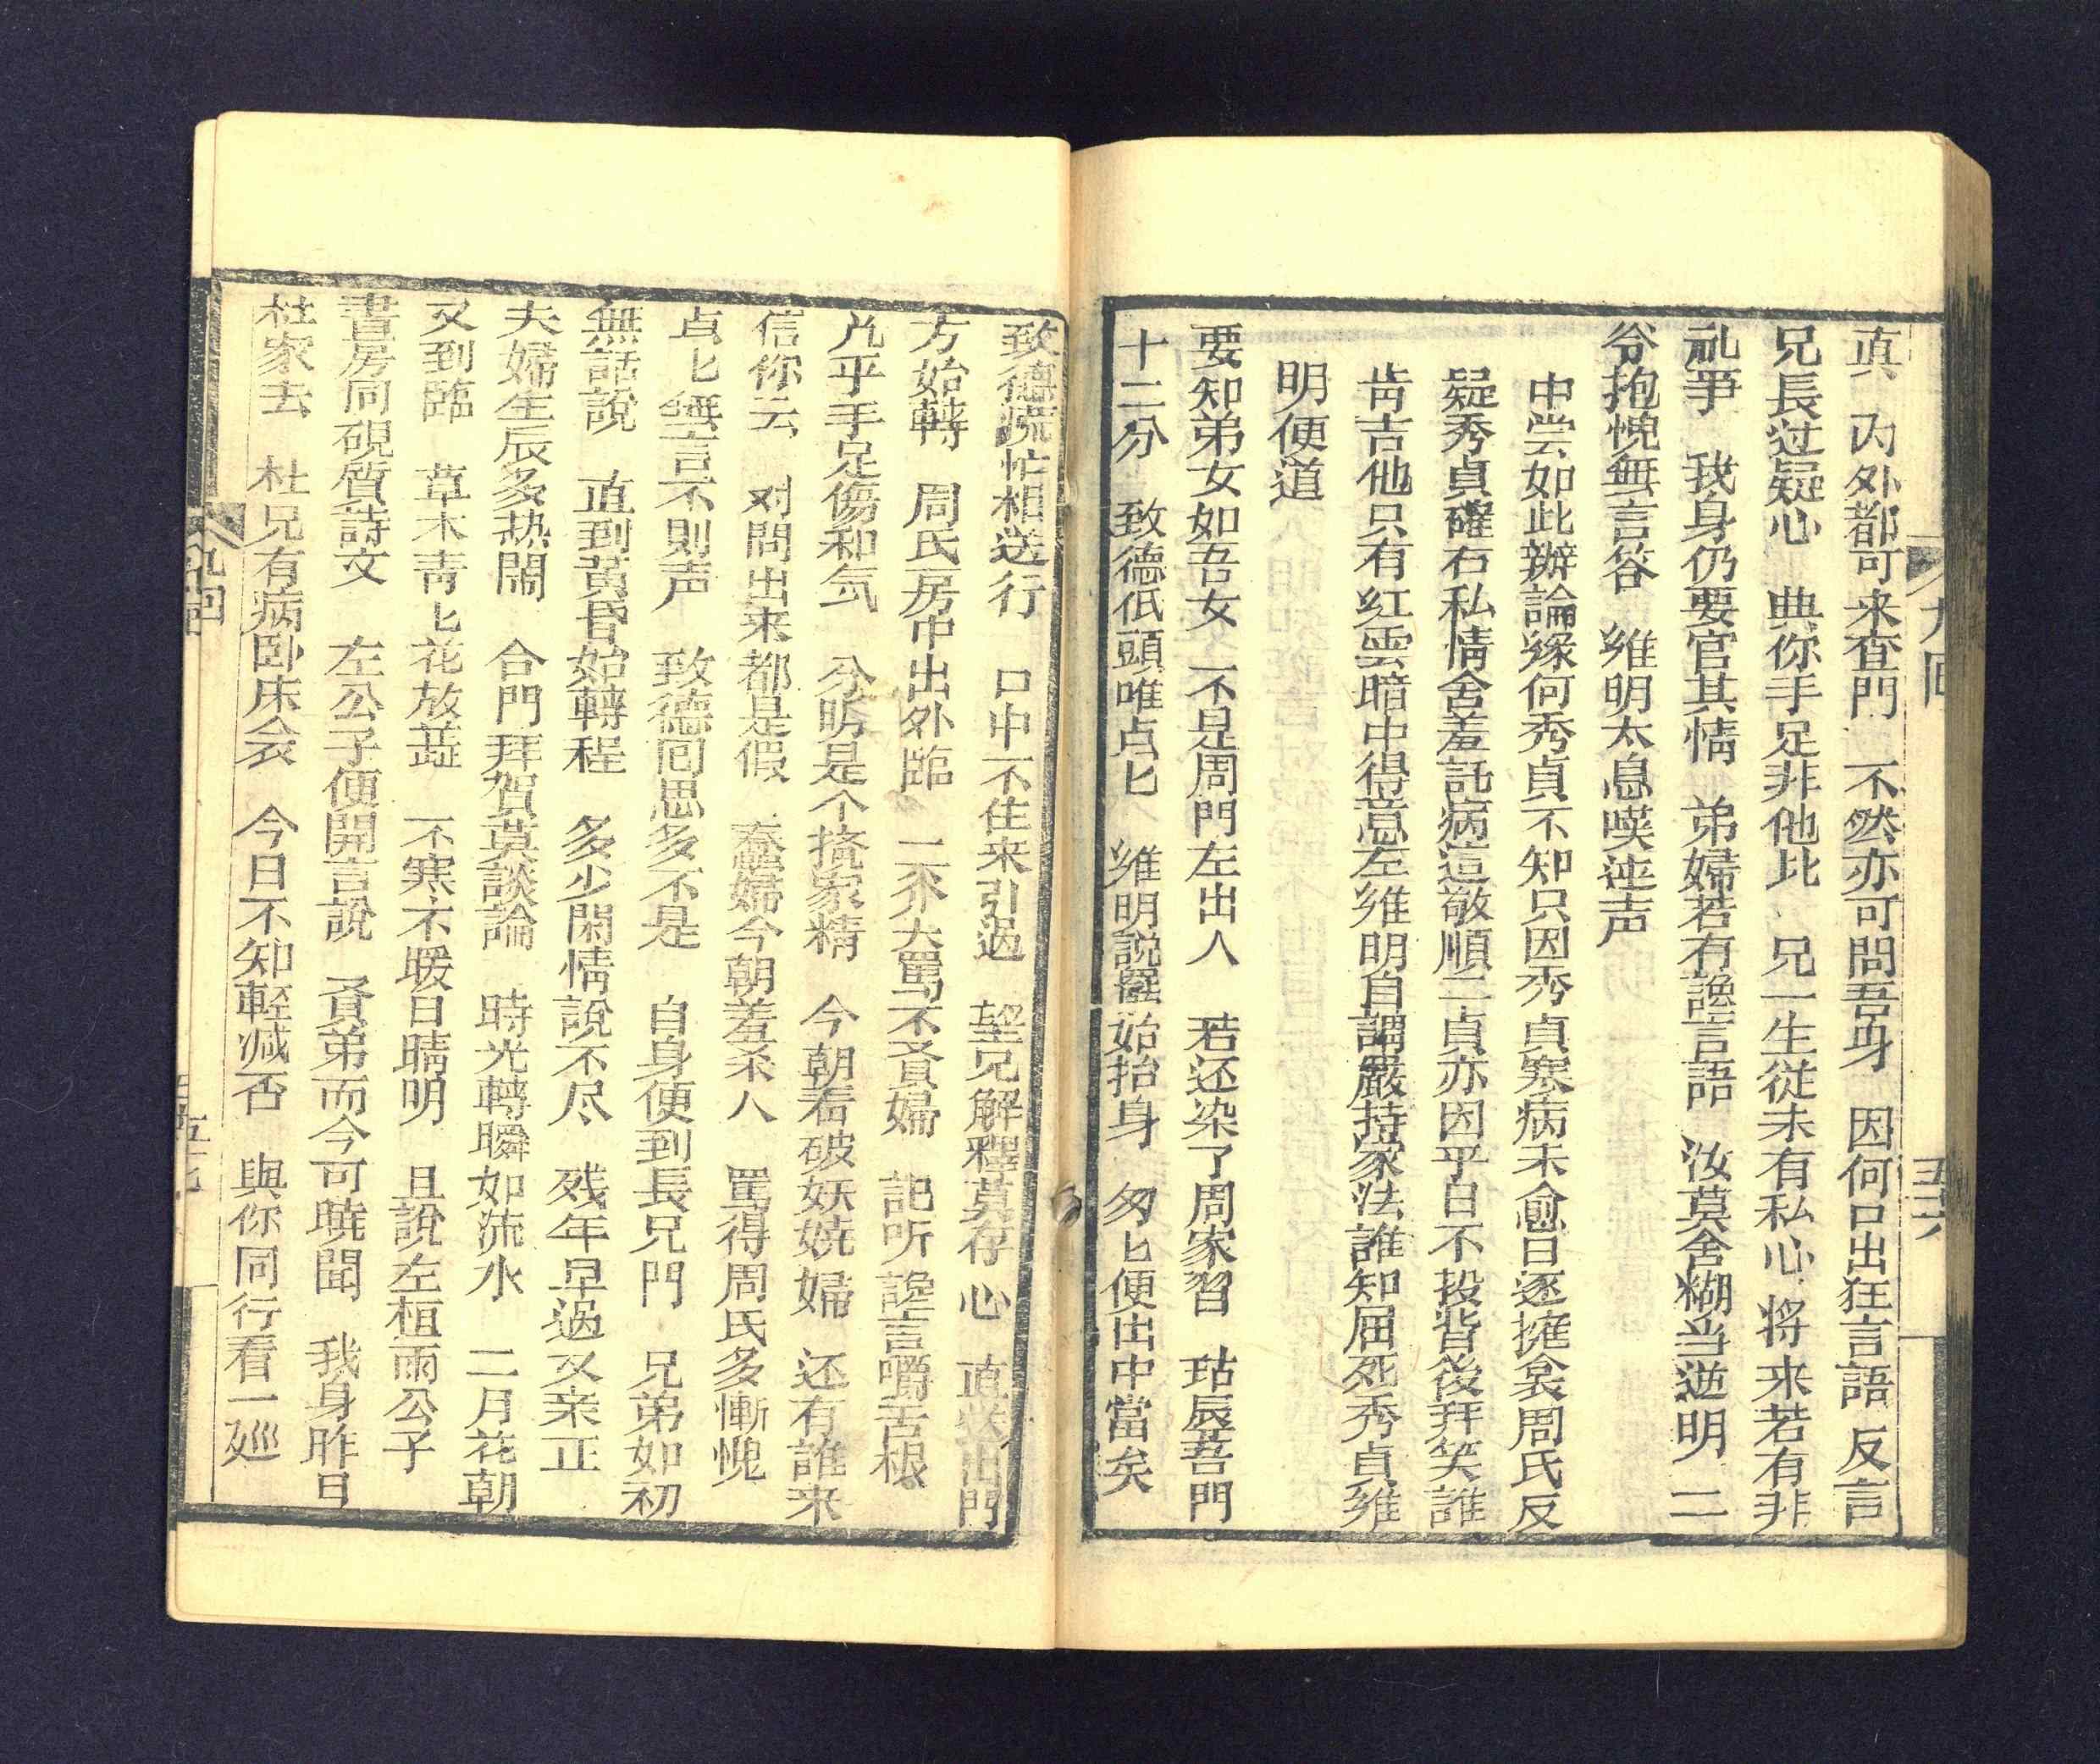 真 内外都可来查門 不然亦可問吾身 因何口出狂言語 反言
兄長过疑心 典你手足非他比 兄一生從未有私心 将来若有非
乱爭 我身仍要官其情 弟婦若有讒言語 汝莫舍糊当遊明 二
爷抱愧無言答 維明太息嘆連声
中尝如此辦論緣何秀貞不知只因秀貞寒病未愈日逐擁衾周氏反
疑秀貞確有私情舍羞託病這敬順二貞亦因平日不投背後拜笑誰
肯吉他只有紅雲暗中得意左維明自謂嚴持家法誰知屈死秀貞維
明便道
要知弟女如吾女 不是周門左出人 若还染了周家習 玷辰吾門
十二分 致德低頭唯点匕 維明說罷始抬身 匆匕便出中當矣
致德慌忙相送行 口中不住来引過 望兄解釋莫存心 直送出門
方始轉 周氏房中出外臨 二爷大罵不賢婦 記听讒言嚼舌根
凢乎手足傷和気 分明是个搞家精 今朝看破妖娆婦 还有誰来
信你云 对問出来都是假 蠢婦今朝羞系人 罵得周氏多慚愧
貞匕無言不則声 致德囘思多不是 自身便到長兄門 兄弟如初
無話說 直到黃昏始轉程 多少閑情說不尽 残年早過又亲正
夫婦生辰多热閙 合門拜賀莫談論 時光轉瞬如流水 二月花朝
又到臨 草木青匕花放蕋 不寒不暖日晴明 且說左桓雨公子
書房同硯質詩文 左公子便開言說 賢弟而今可曉聞 我身昨日
杜家去 杜兄有病卧床衾 今日不知輕減否 與你同行看一廵
九回
五十六
九回
五十七